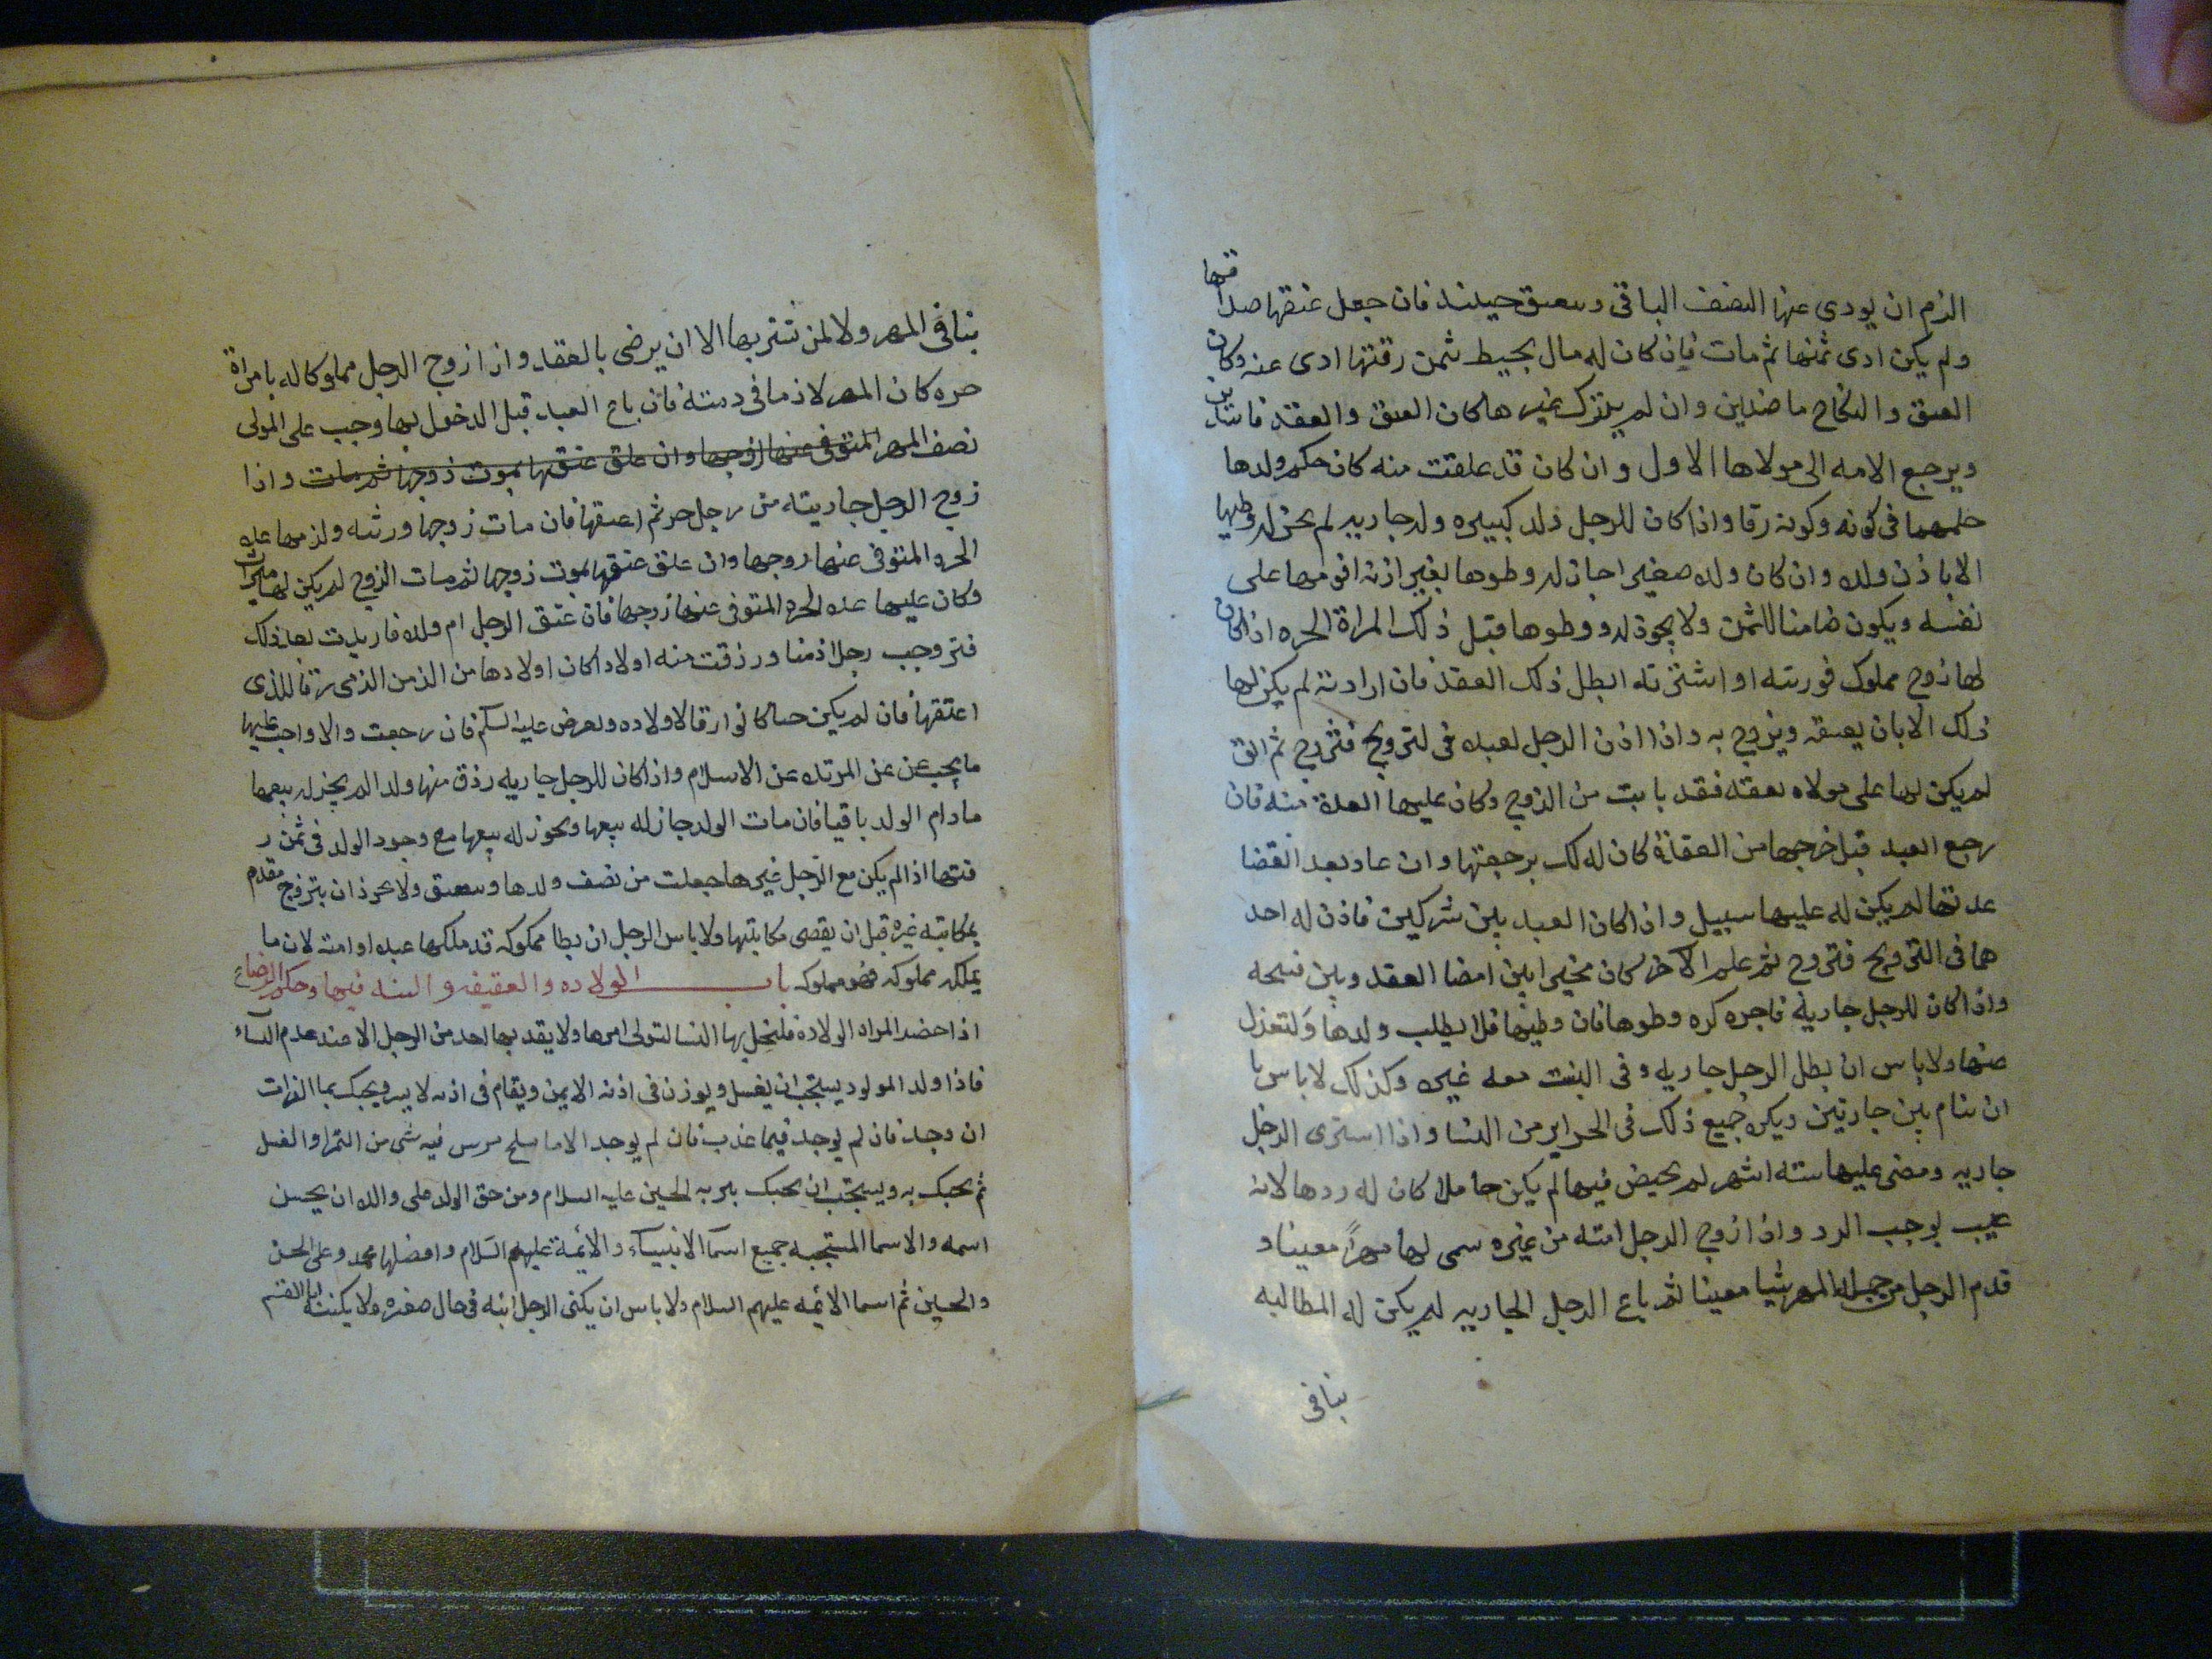 الزم ان يودى عنها النصف الباقى وسعىق حينئذ فان جعل عتقها صداقها
ولم يكن ادى ثمنها ثم مات فان كان له مال يحيط بثمن رقبتها ادى عنه وكان
العتق والنكاح ماضيين وان لم يترك غيرها كان العتق والعقد فاسدين
ويرجع الامه الى مولاها الاول وان كان قد علقت منه كان حكم ولدها
حكمها فى كونه وكونه رقا واذا كان للرجل ولد كبيره ولد جاريه لم يجز له وطيها
الا باذن ولده وان كان ولده صغيرا جاز له وطوها بغير اذنه اقومها على
نفسه ويكون ضامنا للثمن ولا يجوز له ووطوها قبل ذلك المراة الحره اذا كان
لها زوج مملوك فورثته او اشترته ابطل ذلك العقد فان ارادته لم يكن لها
ذلك الا بان يعتقه ويتزوج به واذا اذن الرجل لعبده فى لتزويج فتزوج ثم ابق
لم يكن لها على مولاه نفقه فقد بانت من الزوج وكان عليها العدة منه فان
رجع العبد قبل خروجها من العدة كان له لك برجعتها وان عاد بعد انقضا
عدتها لم يكن له عليها سبيل واذا كان العبد بين شركين فاذن له احد
هما فى التزويج فتزوج ثم علم الآخر كان مخيرا بين امضا العقد وبين فسخه
واذا كان للرجل جارية فاجره كره وطوها فان وطيها فلا يطلب ولدها وليعزل
عنها ولا باس ان يطا الرجل جاريه وفى البيت معه غيره وكذلك لا باس با
ان ينام بين جاريتين ويكره جميع ذلك فى الحراير من النسا واذا اشترى الرجل
جاريه ومضى عليها سته اشهر لم يحيض فيها لم يكن حاملا كان له ردها لانه
عيب يوجب الرد واذا زوج الرجل امته من غيره سمى لها مهرًا معينا و
قدم الرجل من جمله المهر شيا معينا ثم باع الرجل الجاريه لم يكن له المطالبه
بنافى
بنافى المهر ولا لمن يشتريها الا ان يرضى بالعقد واذا زوج الرجل مملوكا له بامراة
حره كان المهر لازما فى ذمته فان باع العبد قبل الدخول بها وجب على المولى
نصف المهر المتوفى عنها زوجها وان علق عتقها بموت زوجها ثم مات واذا
زوج الرجل جاريته من رجل حر ثم اعتقها فان مات زوجها ورثته ولزمها عده
الحره المتوفى عنها زوجها وان علق عتقها بموت زوجها ثم مات الزوج لم يكن لها ميراث
وكان عليها عده الحره المتوفى عنها زوجها فان عتق الرجل ام ولده فاريدت بعد ذلك
فتزوجت رجلا ذميا ورزقت منه اولادا كان اولادها من الزمن الذمى رقا للذى
اعتقها فان لم يكن حيا كانوا رقا لاولاده ويعرض عليه السلم فان رجعت والا وجب عليها
ما يجب عن عن المرتد عن الاسلام واذا كان للرجل جاريه رزق منها ولدا لم يجز له بيعها
مادام الولد باقيا فان مات الولد جاز له بيعها ويجوز له بيعها مع وجود الولد فى ثمن ر
قبتها اذا لم يكن مع الرجل غيرها جعلت من نصف ولدها وسعىق ولا يجوز ان يتزوج مقدم
بمكاتبه غيره قبل ان يقضى مكاتبتها ولا باس الرجل ان يطا مملوكه قد ملكها عبده او امته لان ما
يملكه مملوكه فهو مملوكه باب الولاده والعقيقه والسنه فيها وحكم الرضاع
اذا حضر المراه الولاده فليخل بها النسا لتولى امرها ولا يقد بها احد من الرجل الا عند عدم النساء
فاذا ولد المولود يستحب ان يغسل ويوذن فى اذنه الايمن ويقام فى اذنه لايسر ويحبك بما الفرات
ان وجد فان لم يوجد فيما عذب فان لم يوجد الا ما ملح مرس فيه شى من التمر او العسل
ثم يحبك به ويستحب ان يحبك بتربه الحسين عليه السلام ومن حق الولد على والده ان يحسن
اسمه والاسما المستحبه جميع اسما الانبياء والائمة عليهم السلام وافضلها محمد وعلى الحسن
والحسين ثم اسما الائمه عليهم السلام ولا باس ان يكنى الرجل ابنه فى حال صغره ولا يكننه ابا القسم